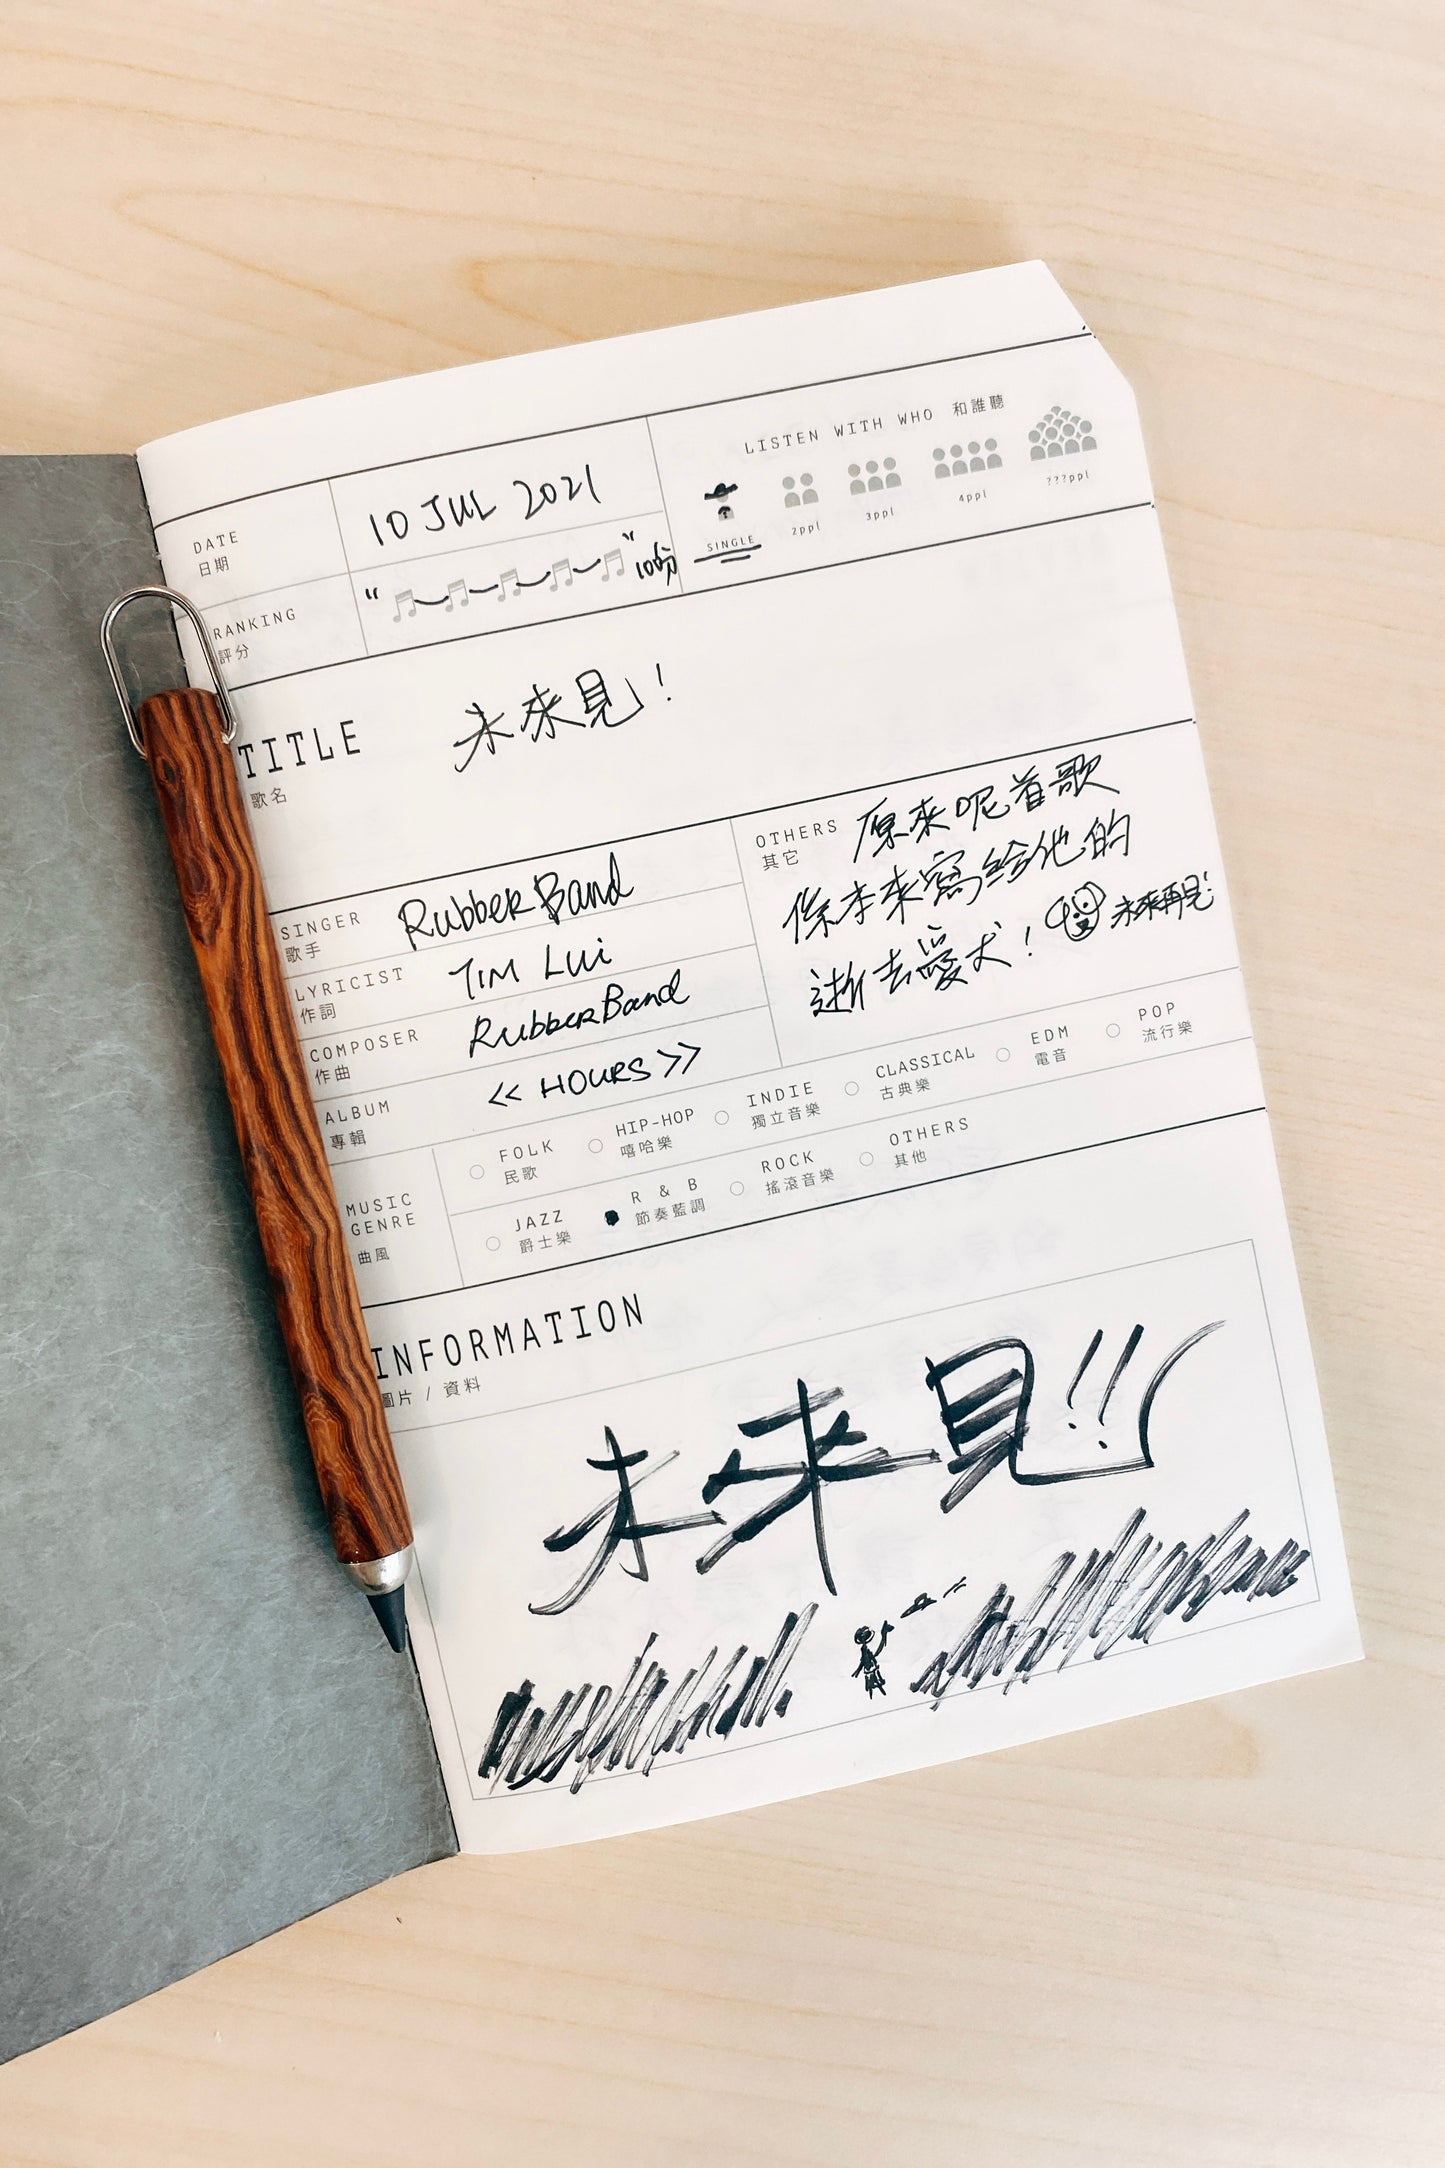 LISTEN WITH WHO 和誰聽
DATE
日期
10 JUL 2021
SINGLE
2ppl
3ppl
4ppl
???ppl
RANKING
評分
" " 10份
TITLE
歌名
未來見!
SINGER
歌手
RubberBand
LYRICIST
作詞
TIM LUi
COMPOSER
作曲
RubberBand
ALBUM
專輯
<< HOURS >>
OTHERS
其它
原來呢首歌
係本來寫給他的
逝去愛犬!
未來再見!
MUSIC
GENRE
曲風
FOLK
民歌
HIP-HOP
嘻哈樂
INDIE
獨立音樂
CLASSICAL
古典樂
EDM
電音
POP
流行樂
JAZZ
爵士樂
R & B
節奏藍調
ROCK
搖滾音樂
OTHERS
其他
INFORMATION
圖片 / 資料
未來見!!